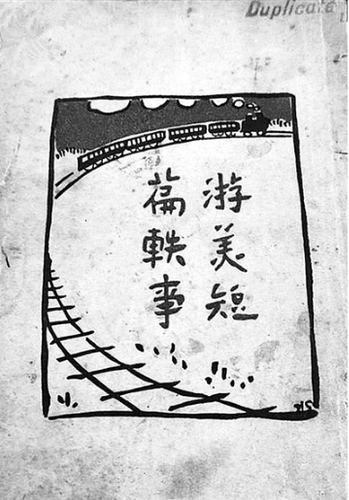 Duplicata
游美短
篇軼事